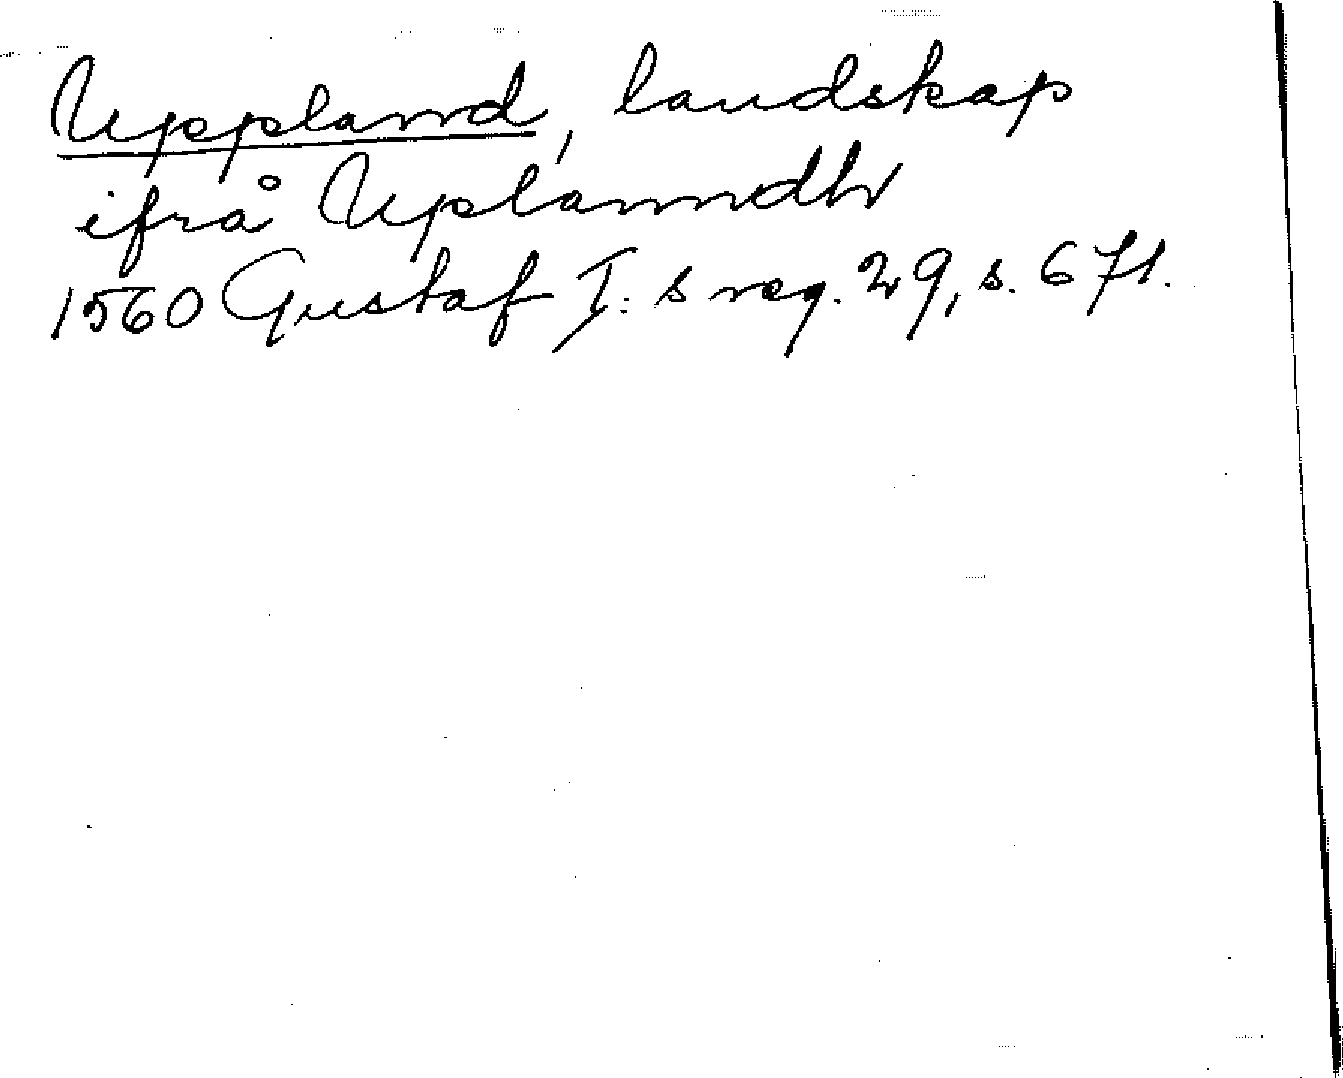 Uppland, landskap
ifrå Uplanndh
1560 Gustaf I:s reg. 29, s. 671.